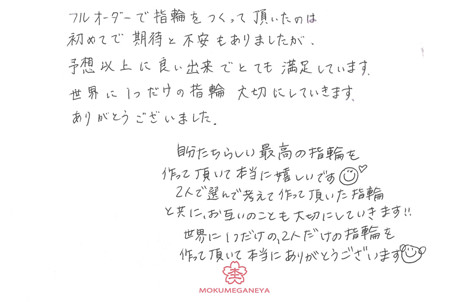 フルオーダーで指輪をつくって頂いたのは
初めてで期待と不安もありましたが、
予想以上に良い出来でとても満足しています。
世界に1つだけの指輪 大切にしていきます。
ありがとうございました。
自分たちらしい最高の指輪を
作って頂いて本当に嬉しいです
2人で選んで考えて作って頂いた指輪
と共に、お互いのことも大切にしていきます!!
世界に1つだけの、2人だけの指輪を
作って頂いて本当にありがとうございます
MOKUMEGANEYA